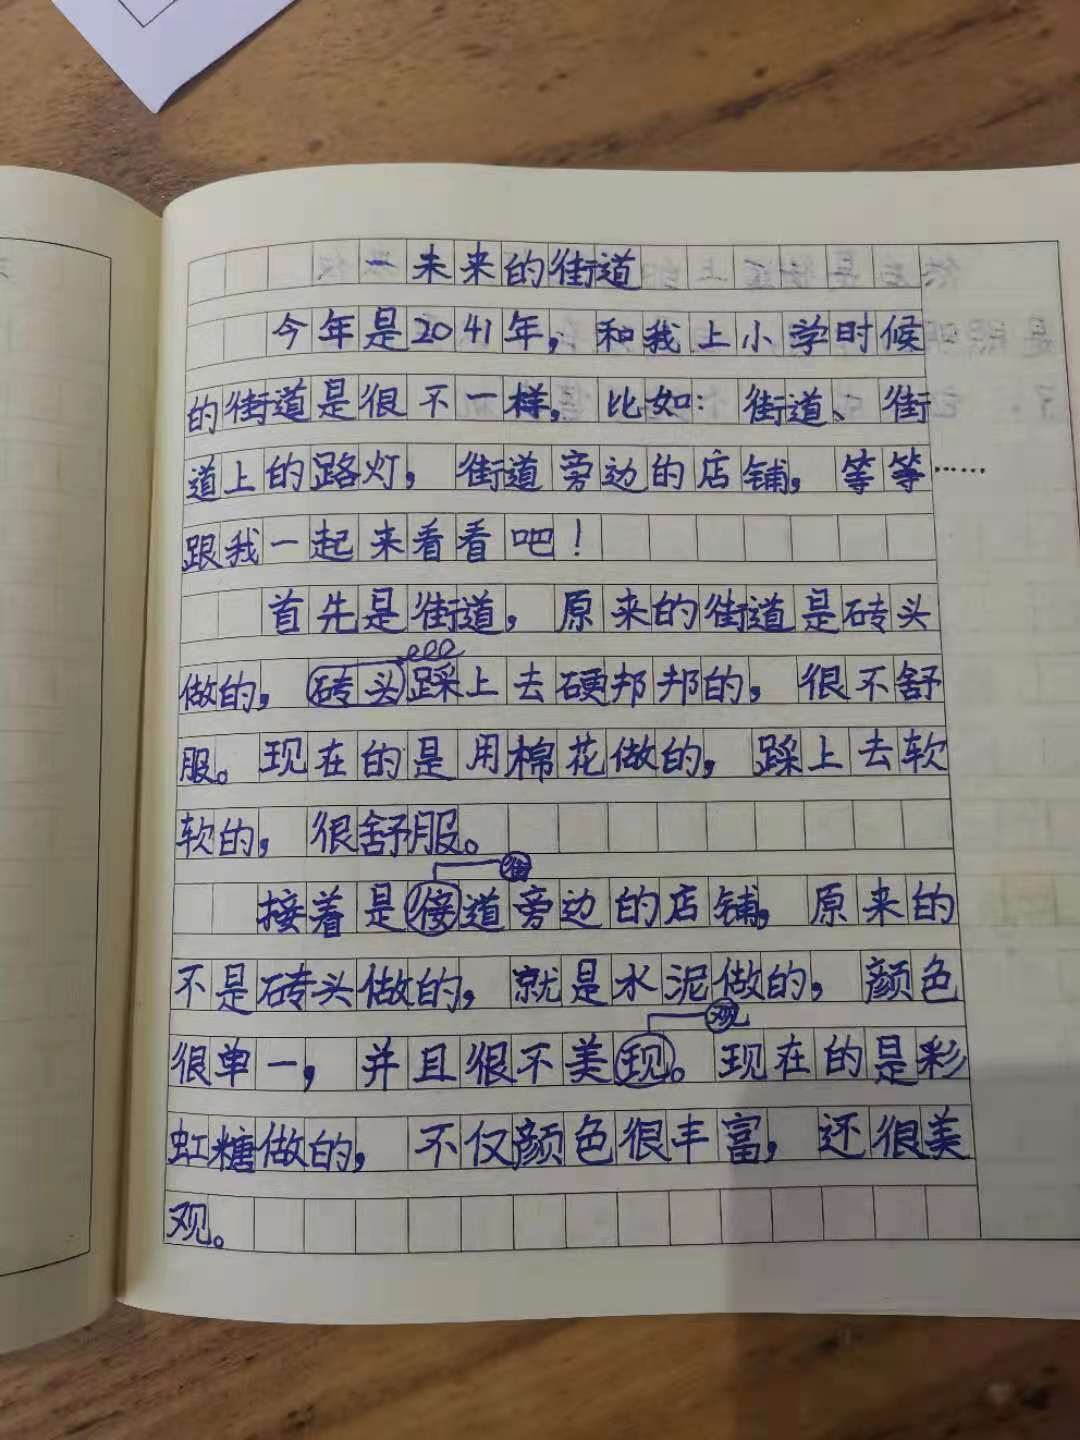 一未来的街道
今年是2041年，和我上小学时候
的街道是很不一样，比如：街道、街
道上的路灯，街道旁边的店铺，等等……
跟我一起来看看吧！
首先是街道，原来的街道是砖头
做的，砖头踩上去硬邦邦的，很不舒
服。现在的是用棉花做的，踩上去软
软的，很舒服。
街
接着是接道旁边的店铺，原来的
不是砖头做的，就是水泥做的，颜色
观
很单一，并且很不美现。现在的是彩
虹糖做的，不仅颜色很丰富，还很美
观。